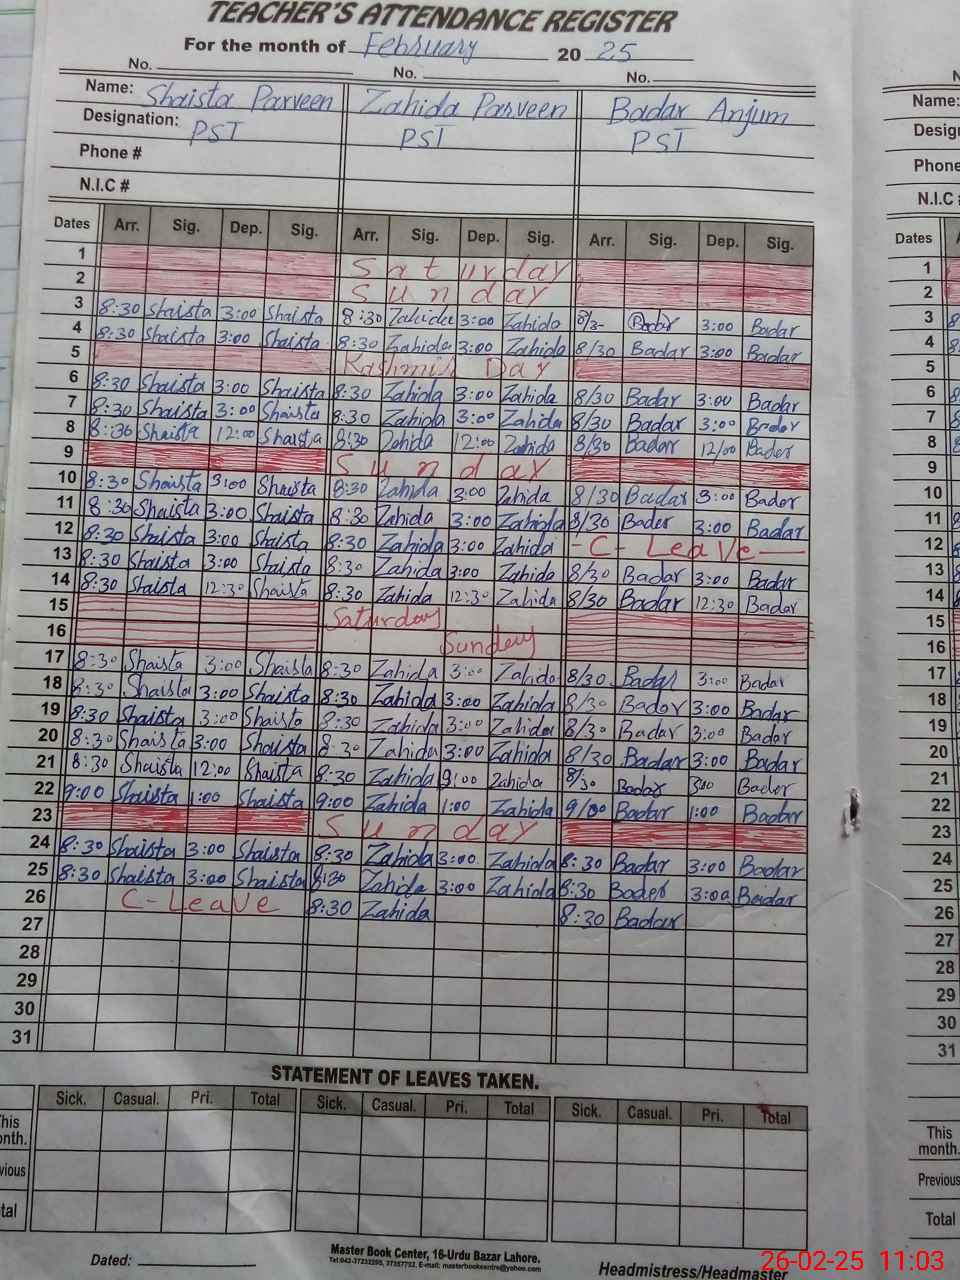 TEACHER'S ATTENDANCE REGISTER
For the month of February 20 25
No. No. No.
Name: Shaista Parveen Zahida Parveen Badar Anjum
Designation: PST PST PST
Phone #
N.I.C #
Dates Arr. Sig. Dep. Sig. Arr. Sig. Dep. Sig. Arr. Sig. Dep. Sig.
1 Saturday
2 Sunday
3 8:30 Shaista 3:00 Shaista 8:30 Zahida 3:00 Zahida Badar 3:00 Badar
4 8:30 Shaista 3:00 Shaista 8:30 Zahida 3:00 Zahida 8/30 Badar 3:00 Badar
5 Kashmir Day
6 8:30 Shaista 3:00 Shaista 8:30 Zahida 3:00 Zahida 8/30 Badar 3:00 Badar
7 8:30 Shaista 3:00 Shaista 8:30 Zahida 3:00 Zahida 8/30 Badar 3:00 Badar
8 8:30 Shaista 12:00 Shaista 8:30 Zahida 12:00 Zahida 8/30 Badar 12/00 Badar
9 Sunday
10 8:30 Shaista 3:00 Shaista 8:30 Zahida 3:00 Zahida 8/30 Badar 3:00 Badar
11 8:30 Shaista 3:00 Shaista 8:30 Zahida 3:00 Zahida 8/30 Badar 3:00 Badar
12 8:30 Shaista 3:00 Shaista 8:30 Zahida 3:00 Zahida - C - Leave -
13 8:30 Shaista 3:00 Shaista 8:30 Zahida 3:00 Zahida 8/30 Badar 3:00 Badar
14 8:30 Shaista 12:30 Shaista 8:30 Zahida 12:30 Zahida 8/30 Badar 12:30 Badar
15 Saturday
16 Sunday
17 8:30 Shaista 3:00 Shaista 8:30 Zahida 3:00 Zahida 8/30 Badar 3:00 Badar
18 8:30 Shaista 3:00 Shaista 8:30 Zahida 3:00 Zahida 8/30 Badar 3:00 Badar
19 8:30 Shaista 3:00 Shaista 8:30 Zahida 3:00 Zahida 8/30 Badar 3:00 Badar
20 8:30 Shaista 3:00 Shaista 8:30 Zahida 3:00 Zahida 8/30 Badar 3:00 Badar
21 8:30 Shaista 12:00 Shaista 8:30 Zahida Zahida 8/30 Badar Badar
22 9:00 Shaista 1:00 Shaista 9:00 Zahida 1:00 Zahida 9/00 Badar 1:00 Badar
23 Sunday
24 8:30 Shaista 3:00 Shaista 8:30 Zahida 3:00 Zahida 8:30 Badar 3:00 Badar
25 8:30 Shaista 3:00 Shaista 8:30 Zahida 3:00 Zahida 8:30 Badar 3:00 Badar
26 C-Leave 8:30 Zahida 8:30 Badar
27
28
29
30
31
STATEMENT OF LEAVES TAKEN.
Sick. Casual. Pri. Total Sick. Casual. Pri. Total Sick. Casual. Pri. Total
This
month.
Previous
Total
Dated:
Master Book Center, 16-Urdu Bazar Lahore.
Headmistress/Headmaster
Name:
Phone
N.I.C
Dates
1
2
3
4
5
6
7
8
9
10
11
12
13
14
15
16
17
18
19
20
21
22
23
24
25
26
27
28
29
30
31
This
month.
Previous
Total
26-02-25 11:03